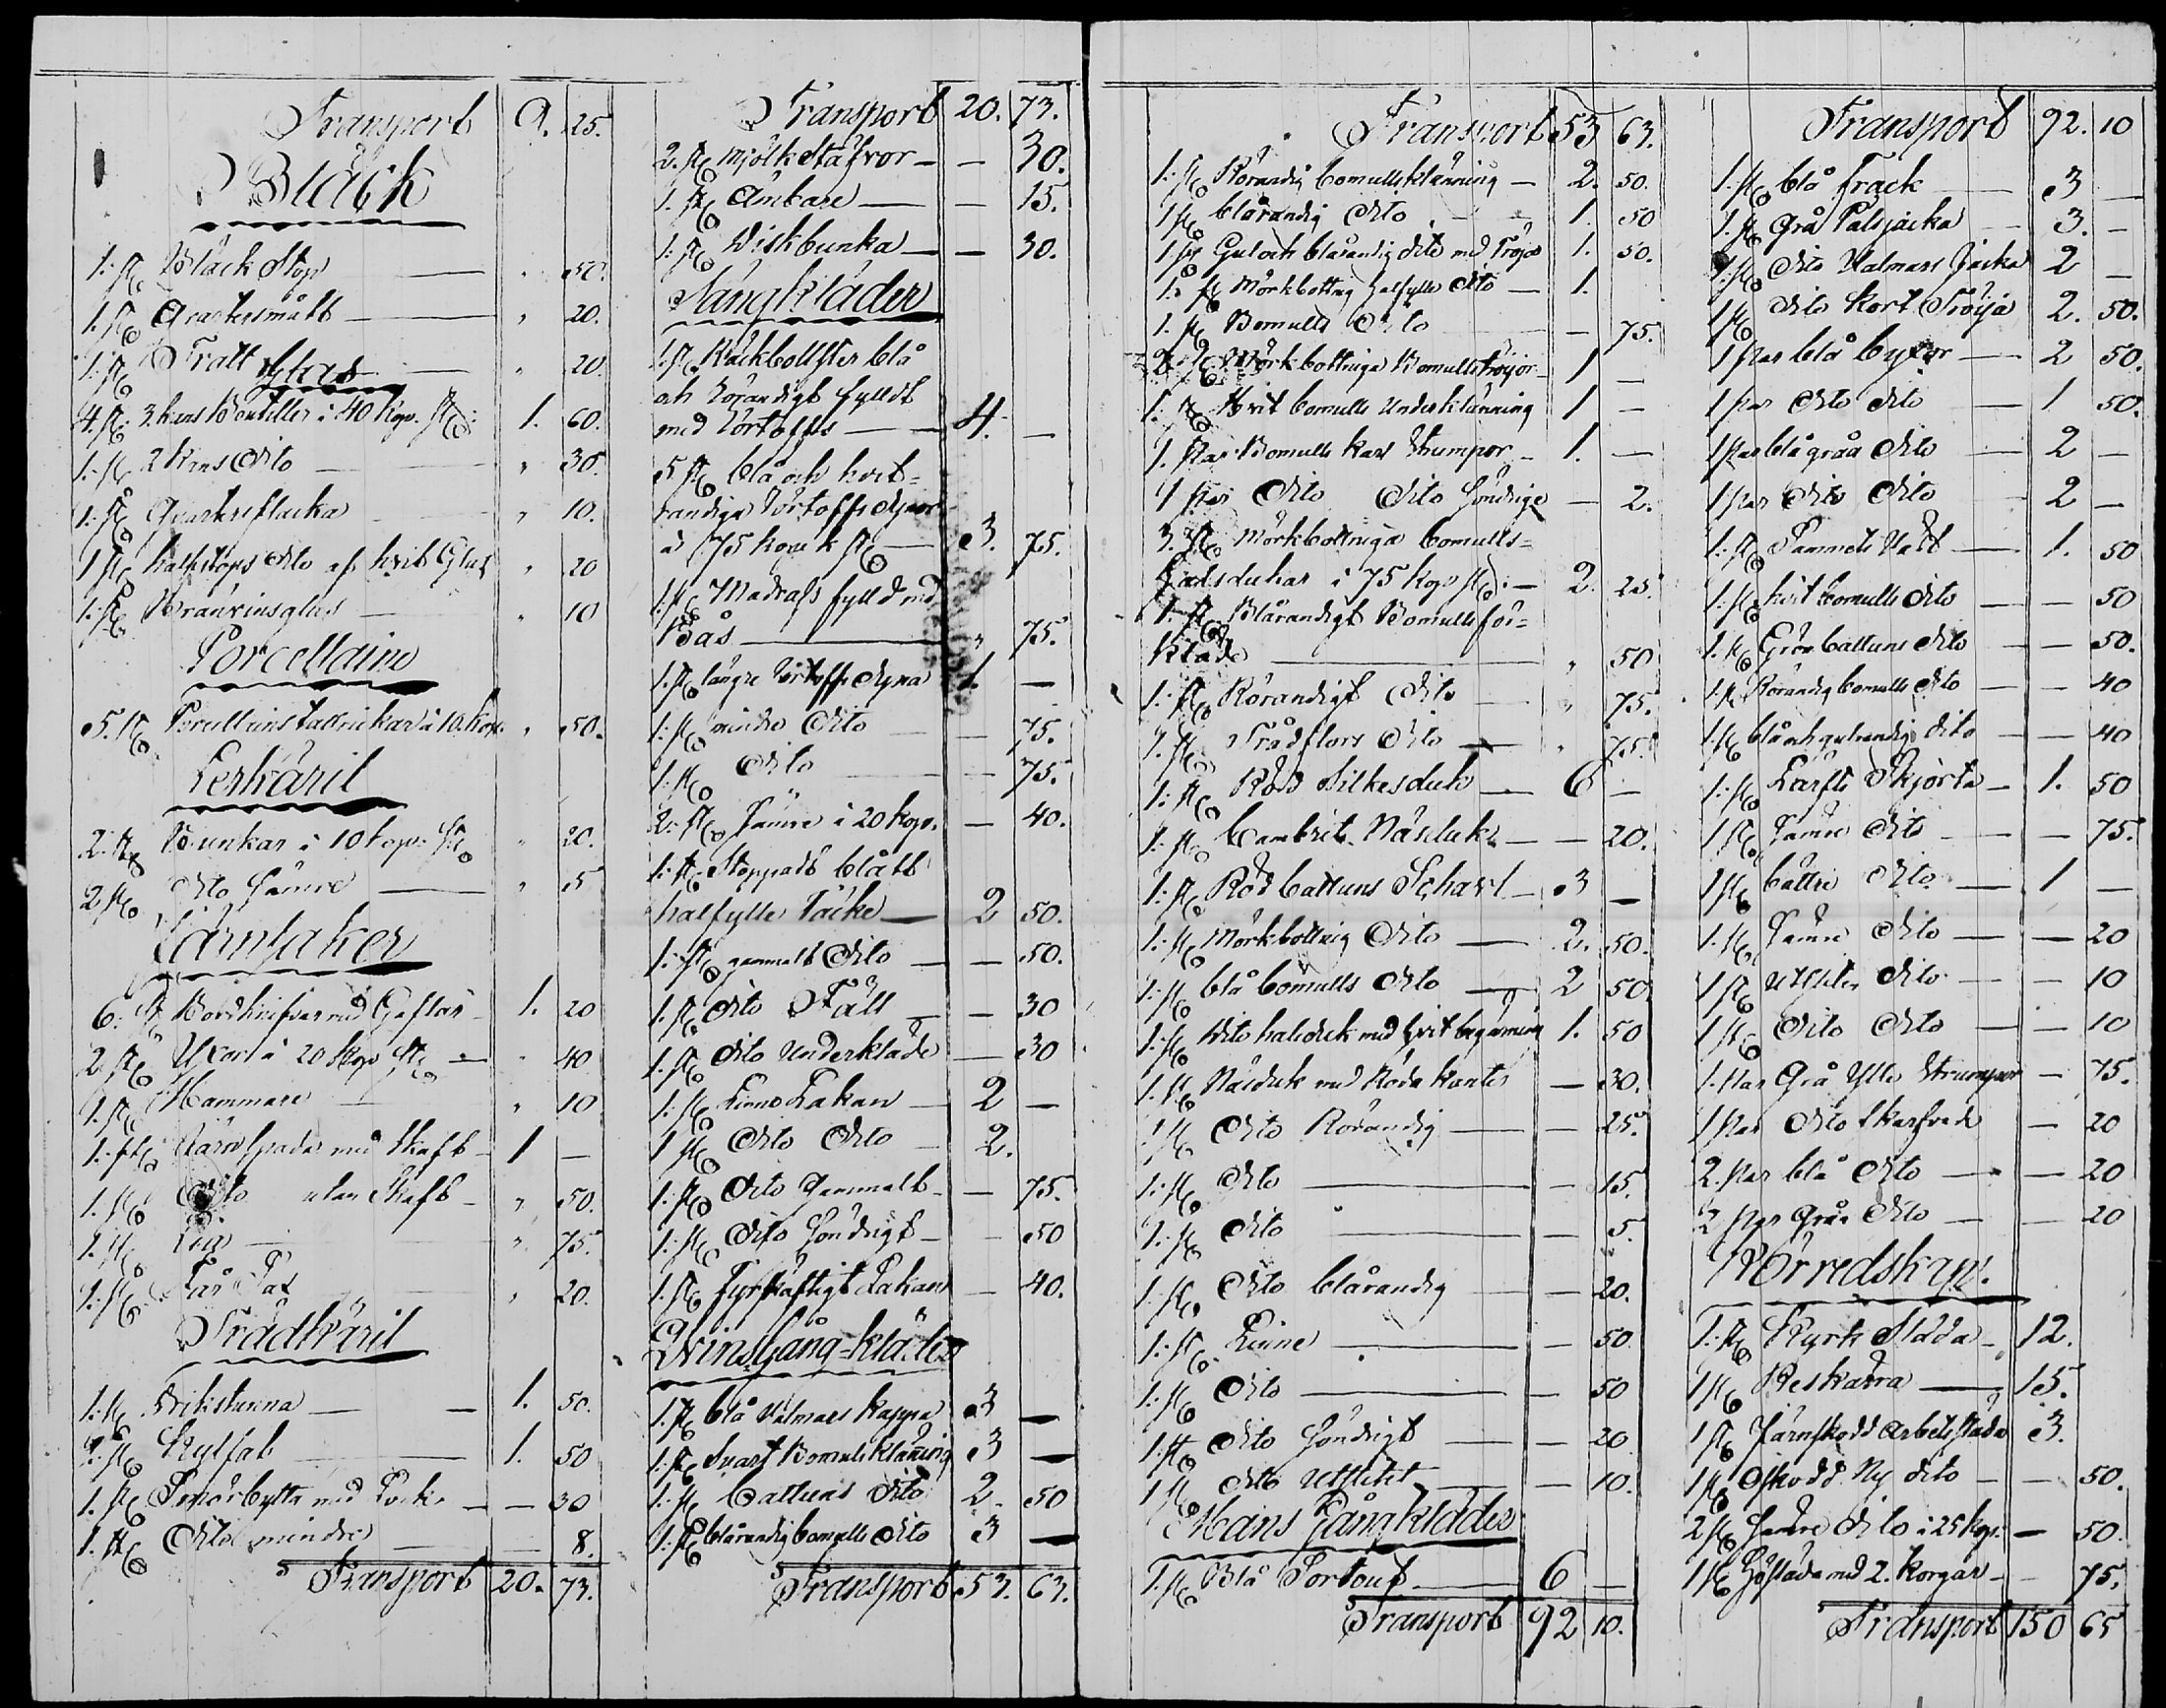 Transport 9. 25.
Bläck
1. st. Bläck Stop — " 50.
1. st. Qvartersmått — " 20.
1. st. Tratt — " 20.
Glas
4. st. 3. kans Bouteller á 40 kop. st: 1. 60.
1. st. 2 kans Dito — " 30.
1. st. Qvartersflaska " 10.
1 st. halfstops dito af hvit Glas " 20
1. st. Bränvinsglas — " 10
Porcellaine
5. st. Porcellains tallrickar á 10. kop. " 50.
Lerkäril
2. st. Bunkar á 10 kop. st. " 20.
2 st. Dito sämre — " 5
Järnsaker
6. st. Bordknifvar med Gafflar 1. 20
2 st. Yxor á 20 kop st. — " 40
1. st. Hammare — " 10
1. st. Järnspada med Skaft 1 —
1. st. Dito utan Skaft — " 50.
1. st. Lia — " 75.
1. st. Får Sax " 20.
Trädkäril
1. st. Drikstunna — 1. 50.
1. st. Kylfat — 1. 50
1. st. Smörbytta med Lock — — 30
1. st. Dito mindre — — 8.
Transport 20. 73.
Transport 20. 73.
2. st. Mjölk Stäfvor — — 30.
1. st. Ämbare — — 15.
1. st. Diskbunka — — 30.
Sängkläder
1. st. Räckbollster blå
och rörandigt fylldt
med Törtoffs — 4. —
5 st. blå och hvit-
randiga Törtoffs dynor
á 75 kopek st. — 3. 75.
1. st. Madrass fylld med
Bås — " 75.
1. st. längre Törtoffs dyna 1. —
1. st. mindre Dito — 75.
1. st. Dito — 75.
2. st. Sämre á 20 kop. — 40.
1. st. Stoppadt blått
halfylle Täcke — 2 50.
1. st. gammalt Dito — — 50.
1. st. Dito Fäll — — 30
1. st. Dito Underkläde — 30
1. st. Linne Lakan — 2 —
1 st. Dito Dito 2.
1. st. Dito Gammalt — — 75.
1. st. Dito Söndrigt — — 50
1. st. Fyrskäftigt Lakan — 40.
Qvinsgång-kläder
1. st. blå Valmars Kappa 3 —
1. st. Svart Bomuls Klänning 3 —
1. st. Cattuns Dito 2. 50
1. st. blårandig bomulls Dito 3 —
Transport 53. 63.
Transport 53 63.
1. st. Rörandig bomullsklänning — 2. 50.
1 st. blårandig Dito — 1. 50
1 st. Gul och blårandig Dito med Tröja 1. 50.
1. st. Mörkbottnig halfylle Dito — 1.
1. st. Bomulls Dito — 75.
2 st. Mörkbottniga Bomullströijor 1 —
1. st. Hvit bomulls Underklänning 1 —
1. Par Bomulls kars Strumpor — 1. —
1 Par Dito Dito Söndriga — 2.
3. st. Mörkbottniga bomulls-
halsdukar á 75 kop st: — 2. 25.
1. st. Blårandigt Bomullsför-
kläde — " 50
1. st. Rörandigt Dito — " 75.
1. st. Trådflors Dito — " 75.
1. st. Röd Silkesduk — 6 —
1. st. Cambrits Näsduk — — 20.
1. st. Röd Cattuns Scharl — 3 —
1. st. Mörkbottnig Dito — 2. 50.
1. st. blå bomulls Dito — 2 50
1. st. Dito halsduk med hvit bagarning 1. 50
1. st. Näsduk med Röda kanter — 30.
1 st. Dito Rörandig — — 25.
1. st. Dito — — 15.
1. st. Dito — — 5.
1. st. Dito blårandig — 20.
1. st. Linne — — 50
1. st. Dito — — 50
1. st. Dito Söndrigt — — 20
1 st. Dito Utslitet — — 10.
Mans Gångkläder
1. st. Blå Sortout — 6 —
Transport 92 10.
Transport 92. 10
1. st. blå Frack — 3 —
1. st. Grå Palsjacka — 3. —
1. st. Dito Valmars Jacka 2 —
1 st. Dito Kort Tröija 2. 50.
1 Par blå byxor — 2 50.
1 Par Dito Dito — 1 50.
1 Par blågråa Dito — 2 —
1 Par Dito Dito — 2 —
1. st. Sammets Väst — 1. 50
1. st. hvit bomulls Dito — — 50
1. st. Grön Cattuns Dito — — 50.
1. st. Rörandig bomulls Dito — — 40
1. st. blå och gulrandig Dito — — 40
1. st. Lärfts Skjorta — 1. 50
1 st. Sämre Dito — — 75.
1 st. bättre Dito — 1 —
1. st. Sämre Dito — — 20
1 st. Utsliten Dito — — 10
1 st. Dito Dito — — 10
1. Par Grå Ylle Strumpor — 75.
1 Par Dito Skarfvade — 20
2. Par blå Dito — — 20
2 Par Gråa Dito — — 20
Körredskap.
1. st. Kyrk Släda — 12.
1 st. Reskärra — 15.
1 st. Järnskodd Arbetssläda 3.
1 st. Oskodd Ny dito — — 50.
2 st. Sämre Dito á 25 kop. — 50.
1 st. Hösläda med 2. korgar — 75.
Transport 150 65